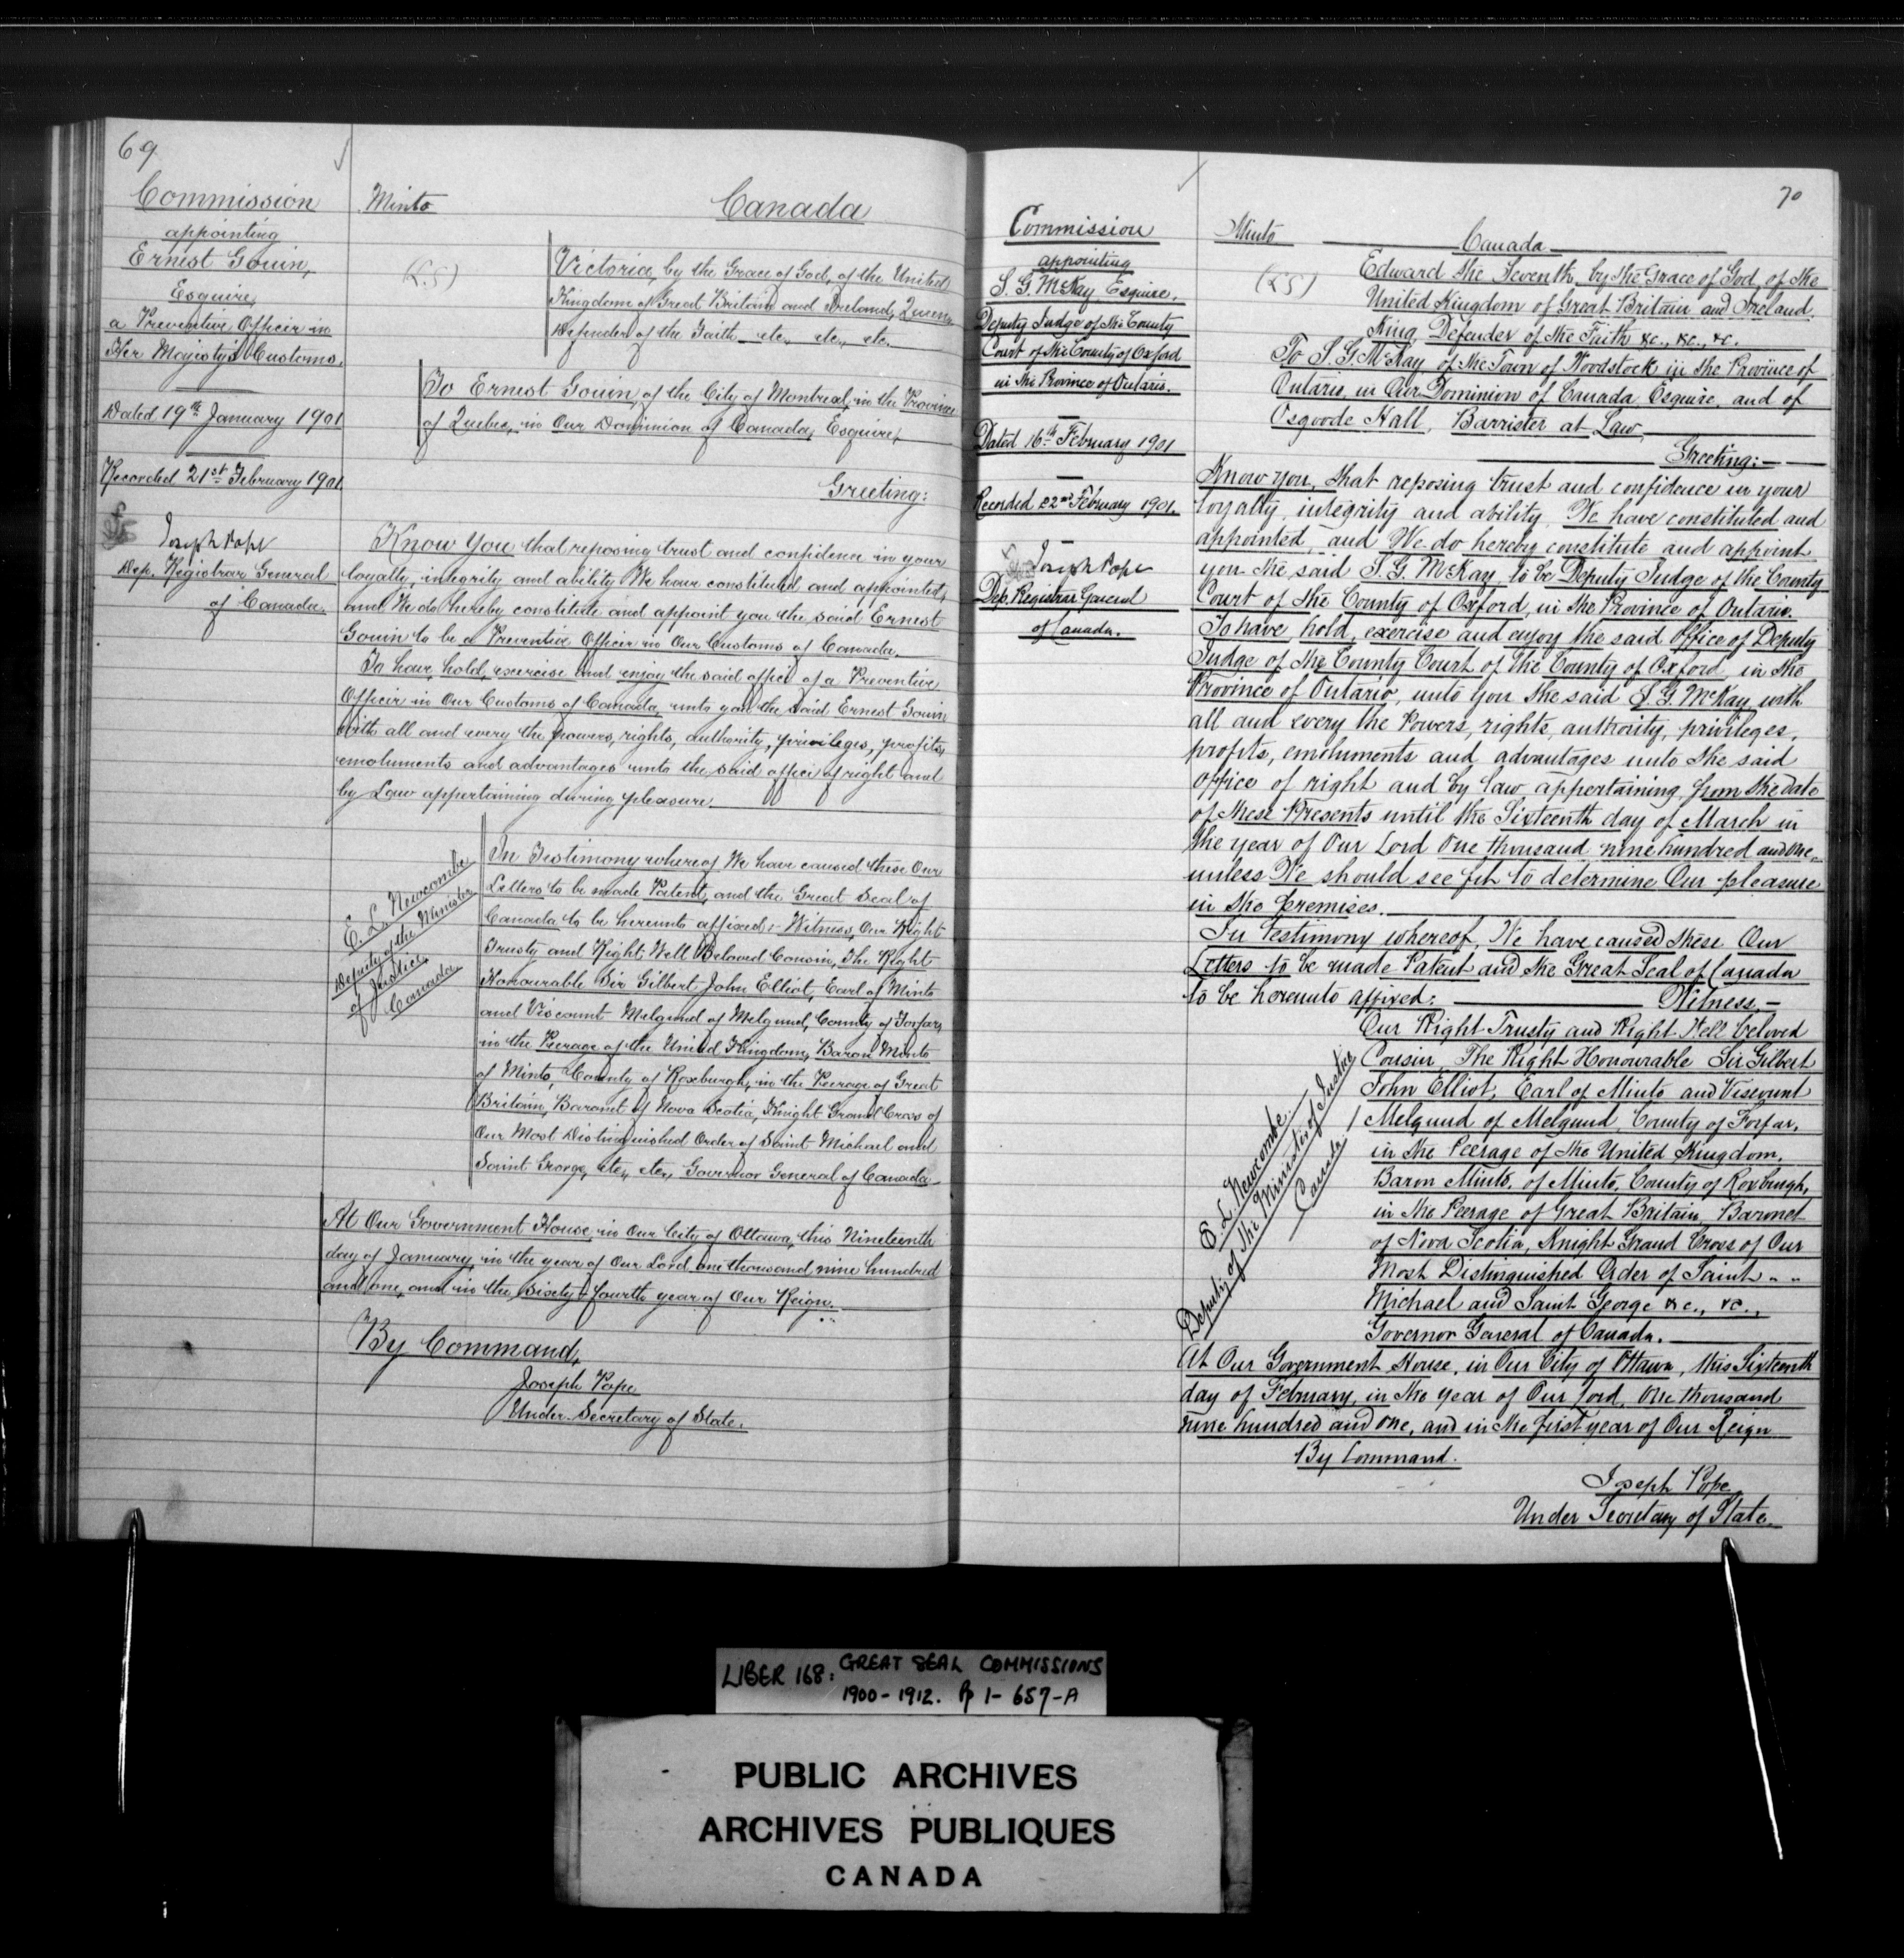 69
Commission
appointing
Ernest Gouin,
Esquire,
a Preventive Officer in
Her Majesty's Customs.
Dated 19th January 1901
Recorded 21st February 1901
Joseph Pope
Dep. Registrar General
of Canada.
Minto
Canada
(L.S)
Victoria, by the Grace of God, of the United
Kingdom of Great Britain and Ireland, Queen,
Defender of the Faith etc., etc., etc.
To Ernest Gouin, of the City of Montreal, in the Province
of Quebec, in Our Dominion of Canada, Esquire,
Greeting:
Know You that reposing trust and confidence in your
loyalty, integrity and ability We have constituted and appointed,
and We do hereby constitute and appoint you the said Ernest
Gouin to be a Preventive Officer in Our Customs of Canada.
To have, hold, exercise and enjoy the said office of a Preventive
Officer in Our Customs of Canada, unto you the said Ernest Gouin
with all and every the powers, rights, authority, privileges, profits,
emoluments and advantages unto the said office of right and
by Law appertaining during pleasure.
In Testimony whereof We have caused these Our
Letters to be made Patent, and the Great Seal of
Canada to be hereunto affixed:- Witness, Our Right
Trusty and Right Well Beloved Cousin, the Right
Honourable Sir Gilbert John Elliot, Earl of Minto
and Viscount Melgund of Melgund, County of Forfar,
in the Peerage of the United Kingdom, Baron Minto
of Minto, County of Roxburgh, in the Peerage of Great
Britain, Baronet of Nova Scotia, Knight Grand Cross of
Our Most Distinguished Order of Saint Michael and
Saint George, etc., etc., Governor General of Canada
E. L. Newcombe
Deputy of the Minister
of Justice,
Canada
At Our Government House, in Our City of Ottawa, this Nineteenth
day of January, in the year of Our Lord, one thousand nine hundred
and one, and in the Sixty-fourth year of Our Reign.
By Command,
Joseph Pope
Under-Secretary of State.
70
Commission
appointing
S. G. McKay, Esquire,
Deputy Judge of the County
Court of the County of Oxford
in the Province of Ontario.
Dated 16th February 1901
Recorded 22nd February 1901.
Joseph Pope
Dep. Registrar General
of Canada.
Minto
Canada
(LS)
Edward the Seventh, by the Grace of God, of the
United Kingdom of Great Britain and Ireland,
King, Defender of the Faith &c., &c., &c.
To S. G. McKay of the Town of Woodstock in the Province of
Ontario, in Our Dominion of Canada, Esquire, and of
Osgoode Hall, Barrister at Law,
Greeting:-
Know you, that reposing trust and confidence in your
loyalty, integrity and ability, We have constituted and
appointed, and We do hereby constitute and appoint
you the said S. G. McKay, to be Deputy Judge of the County
Court of the County of Oxford, in the Province of Ontario.
To have, hold, exercise and enjoy the said Office of Deputy
Judge of the County Court of the County of Oxford, in the
Province of Ontario, unto you the said S. G. McKay, with
all and every the Powers, rights, authority, privileges,
profits, emoluments and advantages unto the said
Office of right and by law appertaining, from the date
of these Presents until the Sixteenth day of March in
the year of Our Lord One thousand nine hundred and One
unless We should see fit to determine Our pleasure
in the Premises.
In testimony whereof, We have caused these Our
Letters to be made Patent and the Great Seal of Canada
to be hereunto affixed: Witness,-
Our Right Trusty and Right Well beloved
Cousin, The Right Honourable Sir Gilbert
John Elliot, Earl of Minto and Viscount
Melgund of Melgund, County of Forfar,
in the Peerage of the United Kingdom,
Baron Minto, of Minto, County of Roxburgh,
in the Peerage of Great Britain, Baronet
of Nova Scotia, Knight Grand Cross of Our
Most Distinguished Order of Saint
Michael and Saint George &c., &c.,
Governor General of Canada.
E. L. Newcombe.
Deputy of the Minister of Justice
Canada
At Our Government House, in Our City of Ottawa, this Sixteenth
day of February, in the year of Our Lord, One thousand
nine hundred and one, and in the first year of Our Reign
By Command.
Joseph Pope
Under Secretary of State.
LIBER 168: GREAT SEAL COMMISSIONS
1900-1912. Pp 1-657-A
PUBLIC ARCHIVES
ARCHIVES PUBLIQUES
CANADA